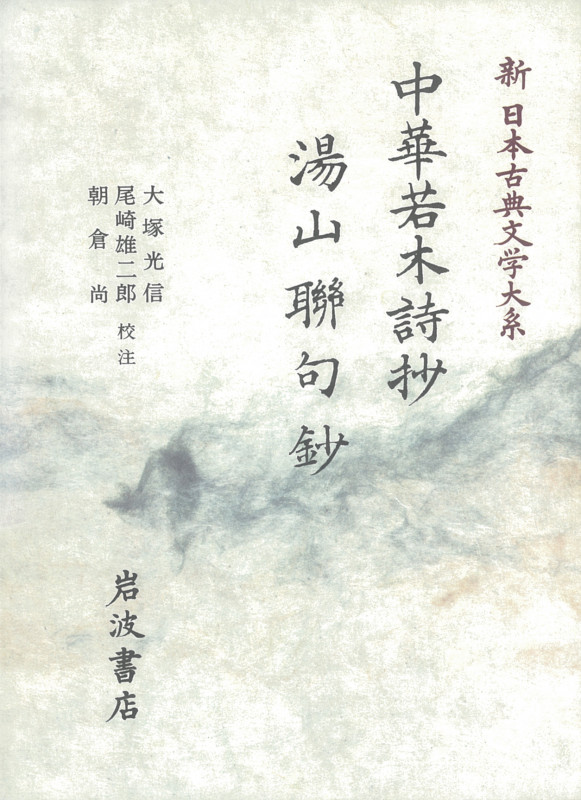 新日本古典文学大系
中華若木詩抄
湯山聯句鈔
大塚光信
尾崎雄二郎
朝倉尚
校注
岩波書店